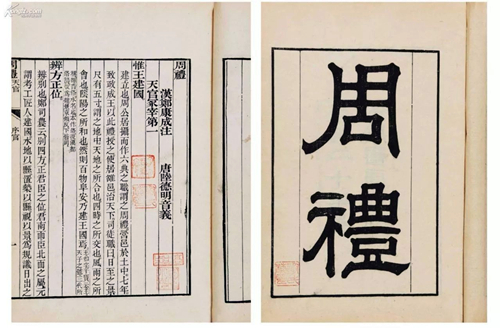 周禮
漢鄭康成注 唐陸德明音義
天官冢宰第一
惟王建國
建立也周公居攝而作六典之職謂之周禮營邑於土中七年
致政成王以此禮授之使居雒邑治天下司徒職曰日至之景
尺有五寸謂之地中天地之所合也四時之所交也風雨之所
會也陰陽之所和也然則百物阜安乃建王國焉
辨方正位
辨別也鄭司農云別四方正君臣之位君南面臣北面之屬玄
謂考工匠人建國水地以縣置槷以縣視以景爲規識日出之
周禮 天官 序官
周禮